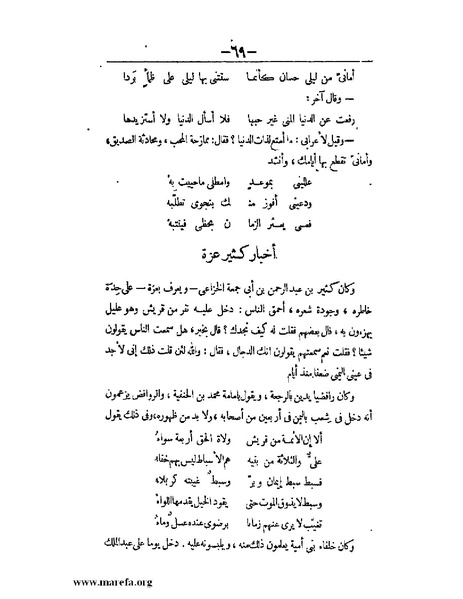 — ٦٩ —
أمانىّ من ليلى حسان كأنما سقتنى بها ليلى على ظمأٍ بَردا
— وقال آخر :
رفعت عن الدنيا المنى غير حبها فلا أسأل الدنيا ولا أستزيدها
— وقيل لأعرابى : ما أمتع لذات الدنيا ؟ فقال : ممازحة المحب ، ومحادثة الصديق ،
وأمانىّ تقطع بها أيامك ، وأنشد
علّلينى بموعد وامطلى ماحييت به
ودعينى أفوز منـ ـك بنجوى تطلّبه
فعسى يعثر الزما ن بحظى فينتبه
أخبار كثير عزة
وكان كثير بن عبد الرحمن بن أبى جمعة الخزاعى – ويعرف بعزة – على حِدّة
خاطره ، وجودة شعره ، أحمق الناس : دخل عليه نفر من قريش وهو عليل
يهزءون به ، قال بعضهم فقلت له كيف تجدك ؟ قال بخير ، هل سمعت الناس يقولون
شيئا ؟ فقلت نعم سمعتهم يقولون انك الدجال ، فقال : والله لئن قلت ذلك إنى لأجد
فى عينى اليمنى ضعفا منذ أيام
وكان رافضيا يدين بالرجعة ، ويقول بامامة محمد بن الحنفية ، والروافض يزعمون
أنه دخل فى شِعب باليمن فى أربعين من أصحابه ، ولا بد من ظهوره ، وفى ذلك يقول
ألا إن الأئمة من قريش ولاة الحق أربعة سواءُ
علىٌّ والثلاثة من بنيه هم الأسباط ليس بهم خفاء
فسبط سبط إيمان وبرّ وسبطٌ غيبته كربلاء
وسبط لا يذوق الموت حتى يقود الخيل يقدمها اللواء
تغيّب لا يرى عنهم زمانا برضوى عنده عسلٌ وماءُ
وكان خلفاء بنى أمية يعلمون ذلك منه ، ويلبسونه عليه . دخل يوما على عبد الملك
www.marefa.org